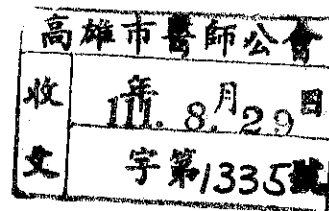 高雄市醫師公會
收文
111年8月29日
字第1335號